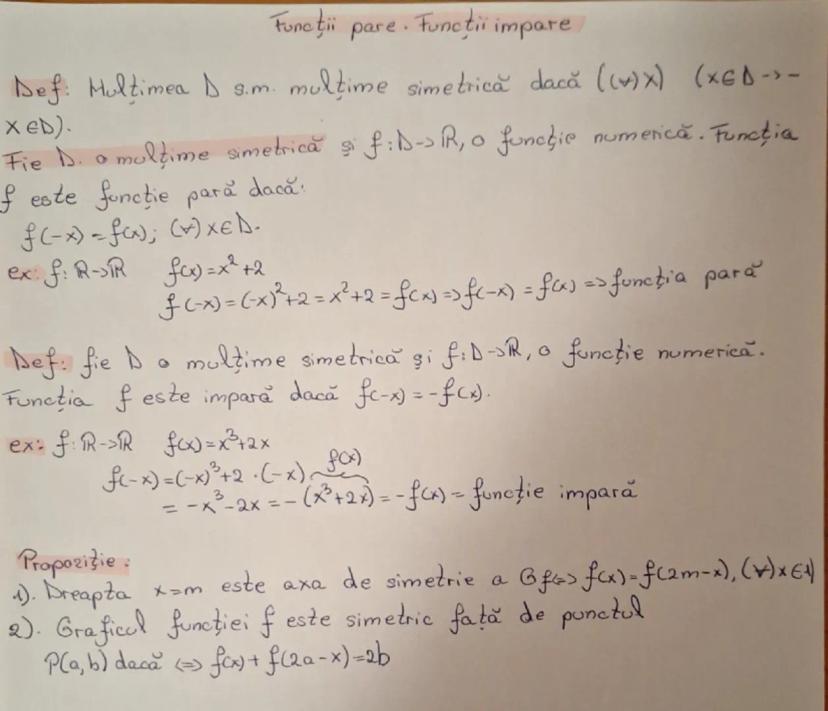 Funcții pare. Funcții impare
Def: Mulțimea D s.m. mulțime simetrică dacă ((∀)x) (x∈D -> -
x∈D).
Fie D. o mulțime simetrică și f:D->ℝ, o funcție numerică. Funcția
f este funcție pară dacă:
f(-x) = f(x); (∀)x∈D.
ex: f:ℝ->ℝ f(x)=x²+2
f(-x)=(-x)²+2=x²+2=f(x)=>f(-x)=f(x)=>funcția pară
Def: fie D o mulțime simetrică și f:D->ℝ, o funcție numerică.
Funcția f este impară dacă f(-x)=-f(x).
ex: f:ℝ->ℝ f(x)=x³+2x
f(-x)=(-x)³+2·(-x) f(x)
= -x³-2x = -(x³+2x) = -f(x) = funcție impară
Propoziție:
1). Dreapta x=m este axa de simetrie a Gf<=> f(x)=f(2m-x), (∀)x∈D
2). Graficul funcției f este simetric față de punctul
P(a,b) dacă <=> f(x)+f(2a-x)=2b